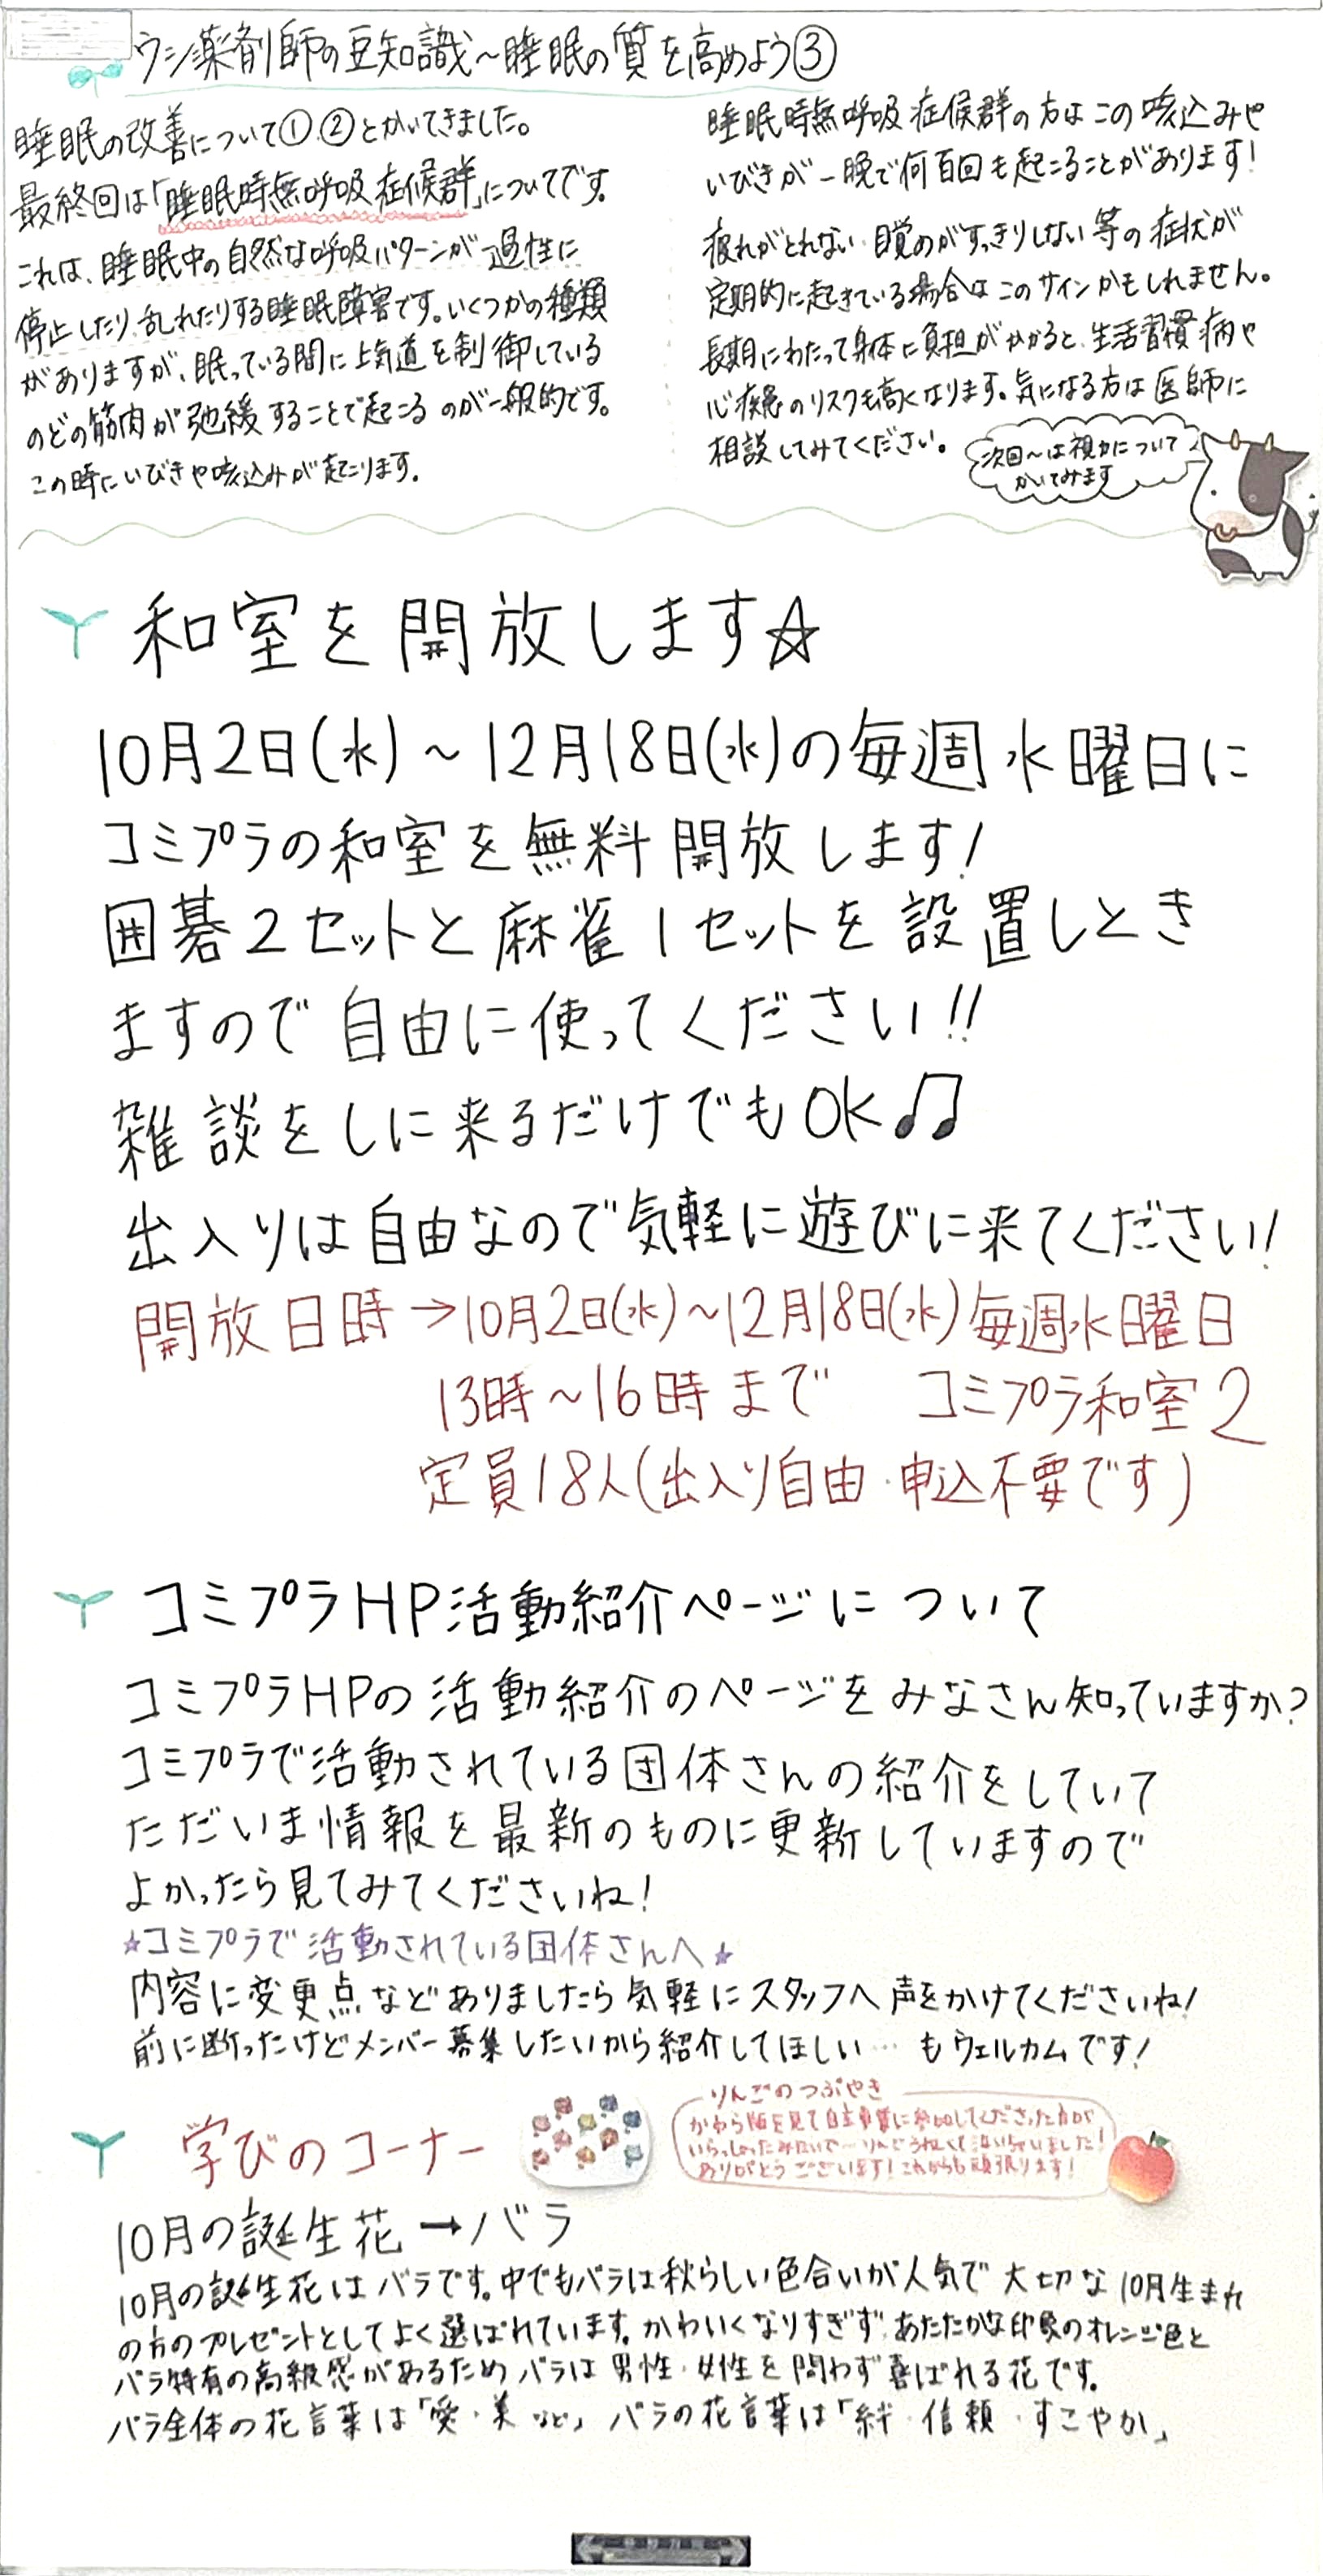 ウシ薬剤師の豆知識～睡眠の質を高めよう③
睡眠の改善について①、②とかいてきました。
最終回は「睡眠時無呼吸症候群」についてです。
これは、睡眠中の自然な呼吸パターンが一過性に
停止したり、乱れたりする睡眠障害です。いくつかの種類
がありますが、眠っている間に上気道を制御している
のどの筋肉が弛緩することで起こるのが一般的です。
この時にいびきや咳込みが起こります。
睡眠時無呼吸症候群の方はこの咳込みや
いびきが一晩で何百回も起こることがあります!
疲れがとれない、目覚めがすっきりしない等の症状が
定期的に起きている場合はこのサインかもしれません。
長期にわたって身体に負担がかかると、生活習慣病や
心疾患のリスクも高くなります。気になる方は医師に
相談してみてください。
次回～は視力について
かいてみます
和室を開放します☆
10月2日(水)～12月18日(水)の毎週水曜日に
コミプラの和室を無料開放します!
囲碁2セットと麻雀1セットを設置しとき
ますので自由に使ってください!!
雑談をしに来るだけでもOK♫
出入りは自由なので気軽に遊びに来てください!
開放日時→10月2日(水)～12月18日(水)毎週水曜日
13時～16時まで コミプラ和室2
定員18人(出入り自由・申込不要です)
コミプラHP活動紹介ページについて
コミプラHPの活動紹介のページをみなさん知っていますか?
コミプラで活動されている団体さんの紹介をしていて
ただいま情報を最新のものに更新していますので
よかったら見てみてくださいね!
☆コミプラで活動されている団体さんへ☆
内容に変更点などありましたら気軽にスタッフへ声をかけてくださいね!
前に断ったけどメンバー募集したいから紹介してほしい…もウェルカムです!
学びのコーナー
りんごのつぶやき
かわら版を見て自主事業に参加してくださった方が
いらっしゃったみたいで～りんごうれしくて泣いちゃいました!
ありがとうございます!これからも頑張ります!
10月の誕生花→バラ
10月の誕生花はバラです。中でもバラは秋らしい色合いが人気で大切な10月生まれ
の方のプレゼントとしてよく選ばれています。かわいくなりすぎず、あたたかな印象のオレンジ色と
バラ特有の高級感があるためバラは男性・女性を問わず喜ばれる花です。
バラ全体の花言葉は「愛・美など」バラの花言葉は「絆・信頼・すこやか」